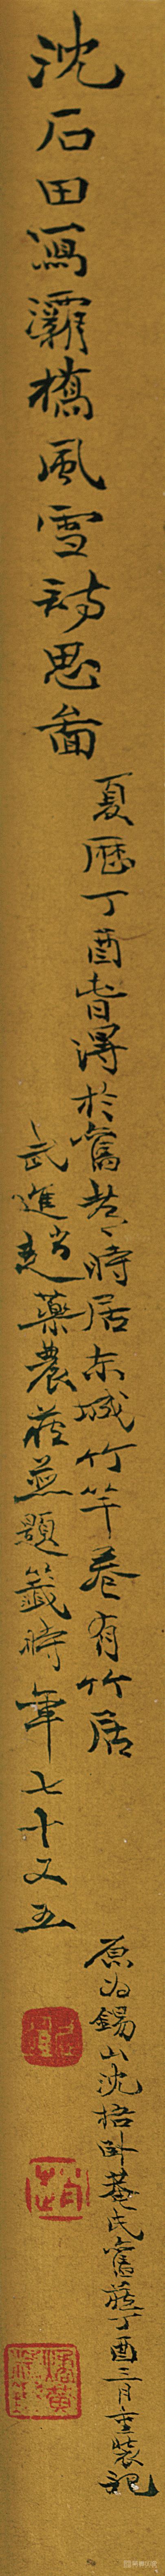 沈石田寫灞橋風雪詩思啚
夏曆丁酉春得於舊京時居东城竹竿巷有竹居
武進趙藥農藏並題籤時年七十又五
原为錫山沈梧旴菴氏舊藏丁酉三月重裝記